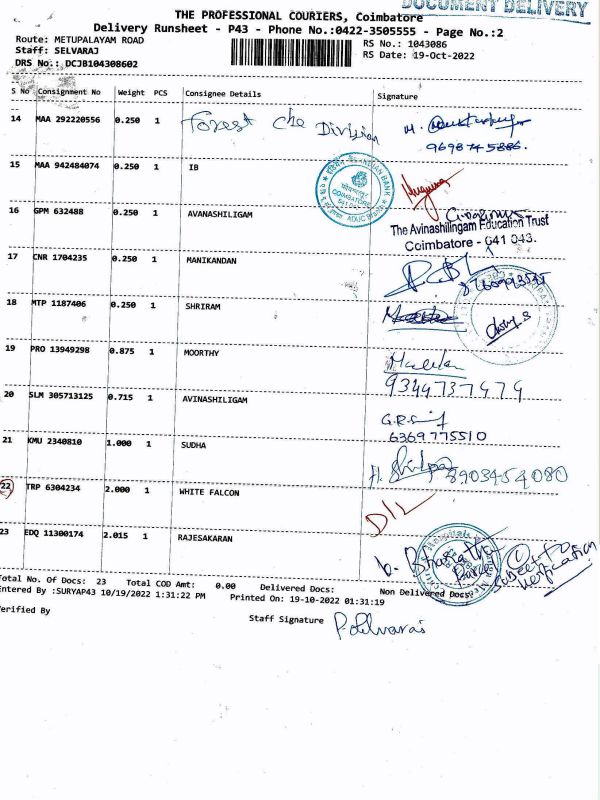 DOCUMENT DELIVERY
THE PROFESSIONAL COURIERS, Coimbatore
Delivery Runsheet - P43 - Phone No.:0422-3505555 - Page No.:2
Route: METUPALAYAM ROAD RS No.: 1043086
Staff: SELVARAJ RS Date: 19-Oct-2022
DRS No.: DCJB104308602
S No Consignment No Weight PCS Consignee Details Signature
14 MAA 292220556 0.250 1 Forest Division
9698745886.
15 MAA 942484074 0.250 1 IB
INDIAN BANK
COIMBATORE
16 GPM 632488 0.250 1 AVANASHILIGAM
The Avinashilingam Education Trust
Coimbatore - 641 043.
17 CNR 1704235 0.250 1 MANIKANDAN
18 MTP 1187406 0.250 1 SHRIRAM
19 PRO 13949298 0.875 1 MOORTHY
9344737479
20 SLM 305713125 0.715 1 AVINASHILIGAM
6369775510
21 KMU 2340810 1.000 1 SUDHA
8903454080
22 TRP 6304234 2.000 1 WHITE FALCON
D/L
23 EDQ 11300174 2.015 1 RAJESAKARAN
b. Bharathi
Parcel Subject To
Verification
Total No. Of Docs: 23 Total COD Amt: 0.00 Delivered Docs: Non Delivered Docs:
Entered By :SURYAP43 10/19/2022 1:31:22 PM Printed On: 19-10-2022 01:31:19
Verified By Staff Signature P. Selvaraj